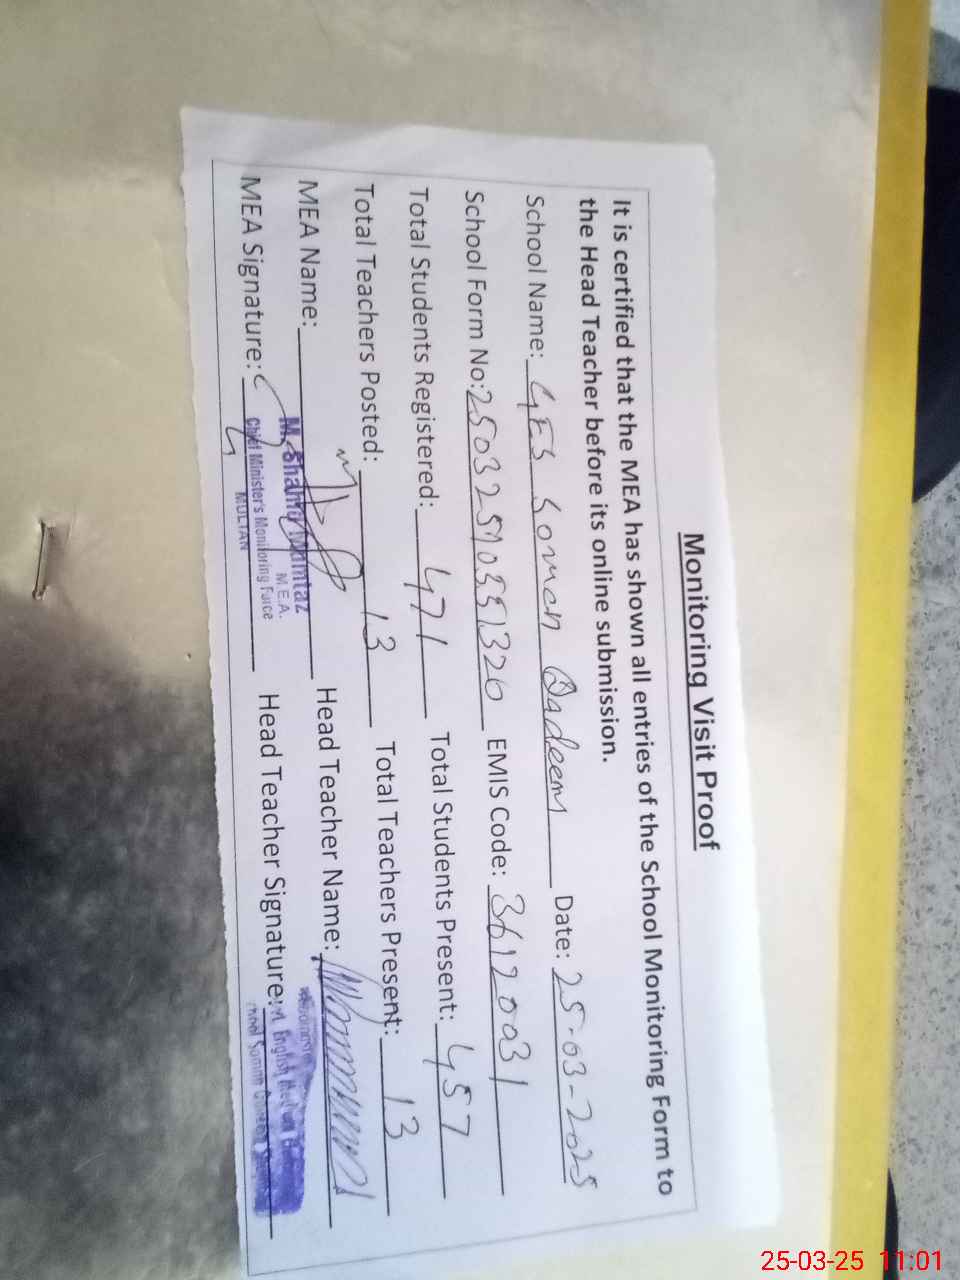 Monitoring Visit Proof
It is certified that the MEA has shown all entries of the School Monitoring Form to
the Head Teacher before its online submission.
School Name: GES Soman Qadeem Date: 25-03-2025
School Form No: EMIS Code: 36120031
Total Students Registered: 471 Total Students Present: 457
Total Teachers Posted: 13 Total Teachers Present: 13
MEA Name: M. Shahid Mumtaz Head Teacher Name:
M.E.A.
MEA Signature: Chief Minister's Monitoring Force Head Teacher Signature:
MULTAN
English
School Soman
25-03-25 11:01